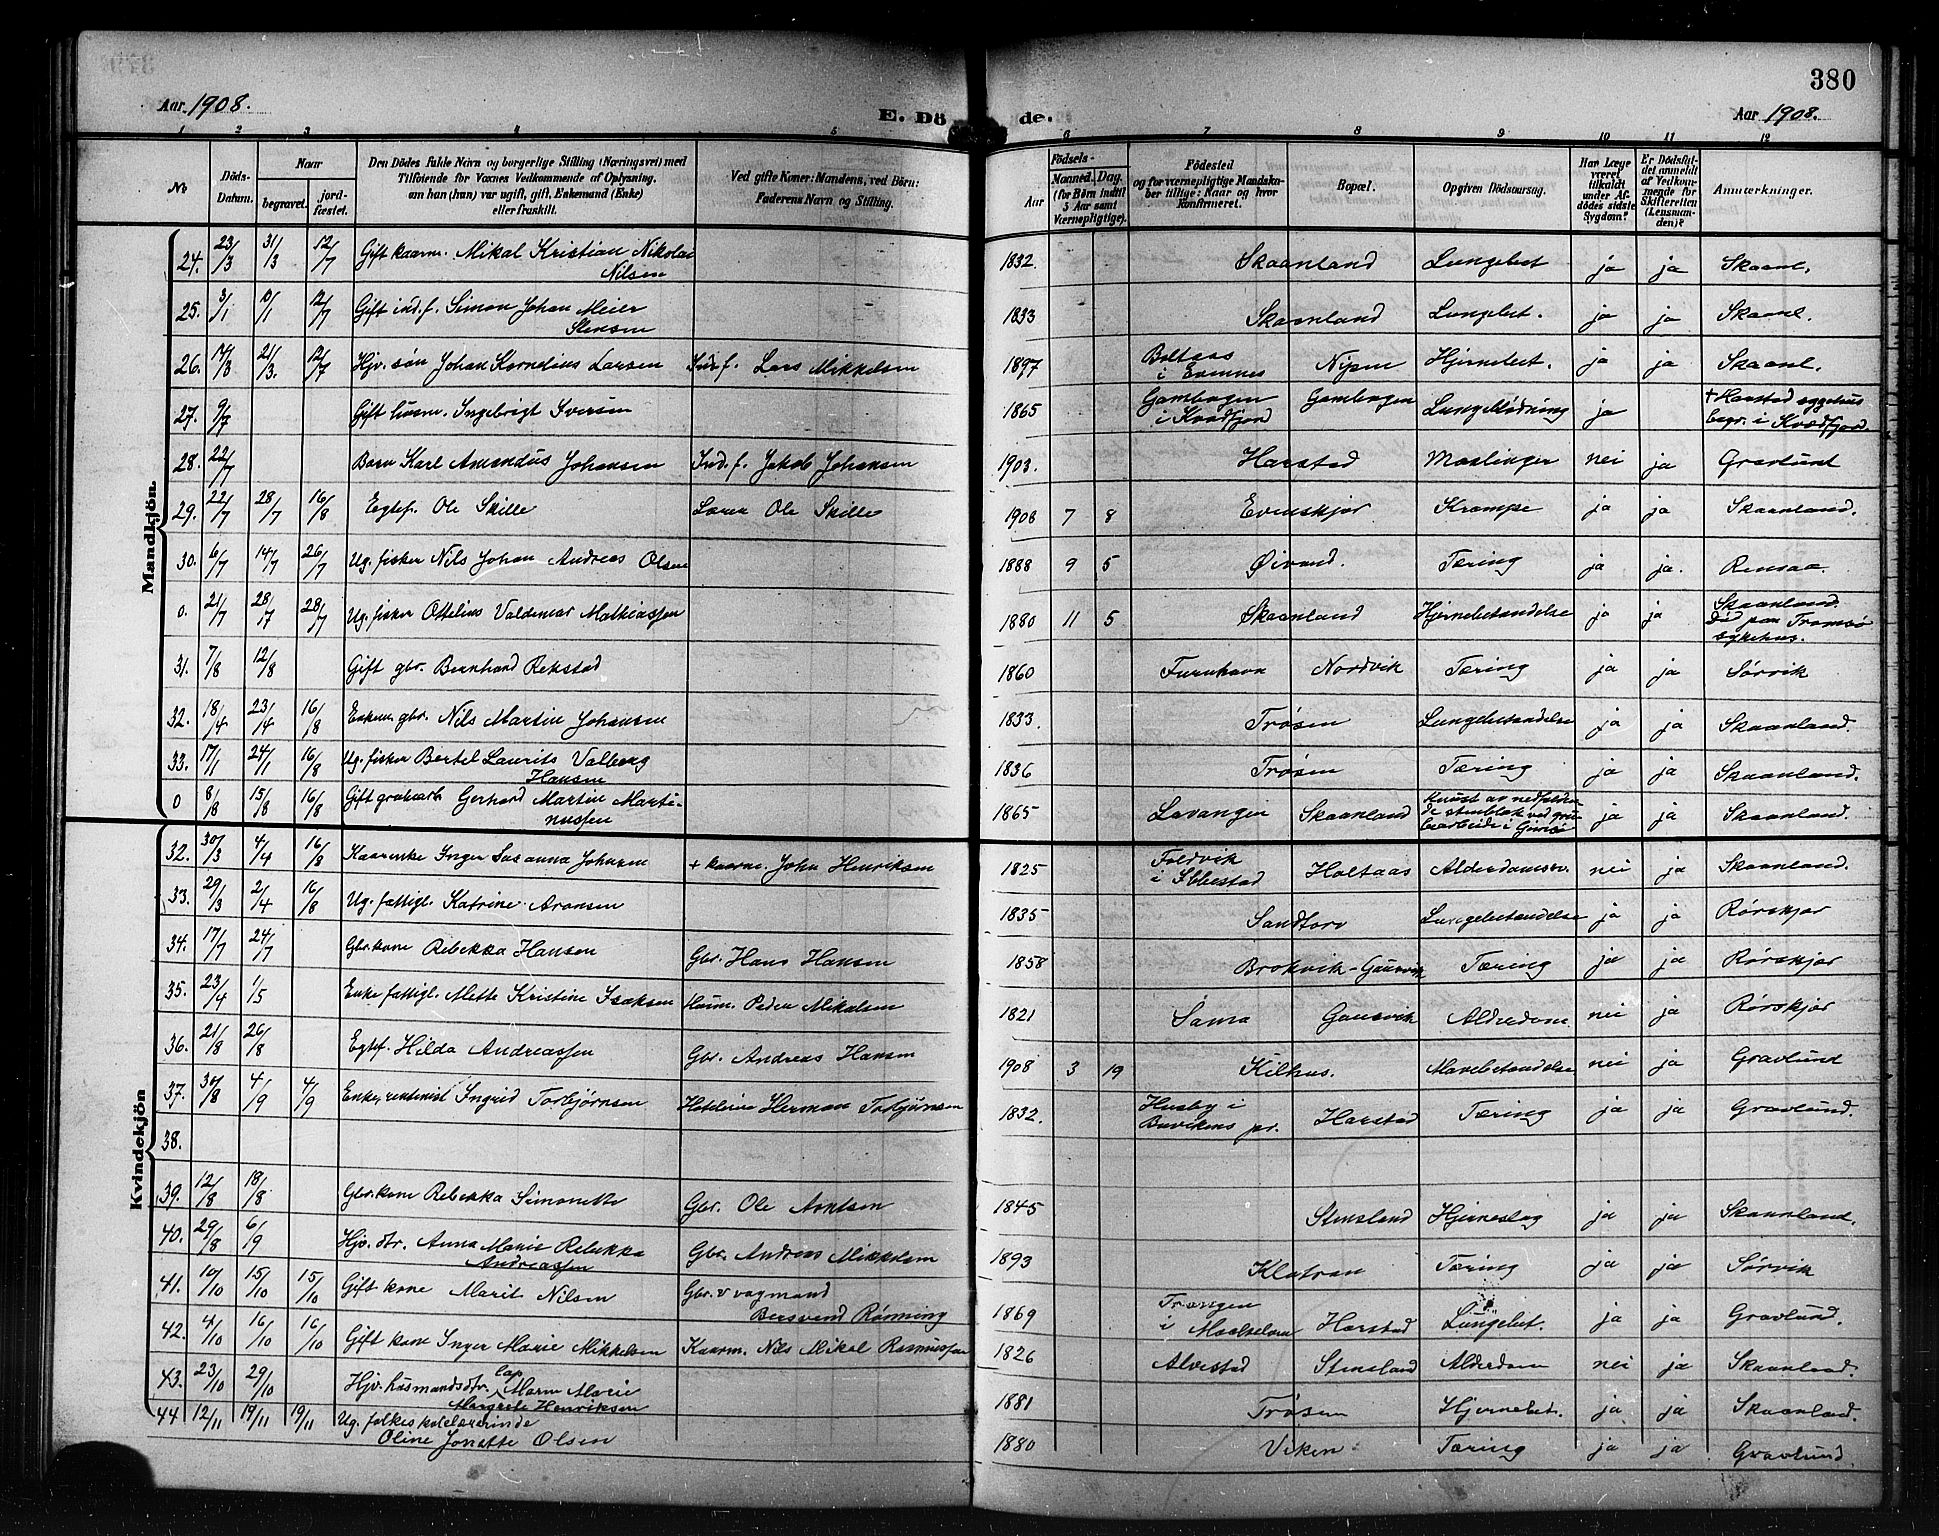 380
Aar 1908.
E. Dö de.
Aar 1908.
1 2 3 4 5 6 7 8 9 10 11 12
No
Döds-Datum.
Naar
begravet.
jord-fæstet.
Den Dödes fulde Navn og borgerlige Stilling (Næringsvei) med
Tilföiende for Voxnes Vedkommende af Oplysning,
om han (hun) var ugift, gift, Enkemand (Enke)
eller fraskilt.
Ved gifte Koner: Mandens, ved Börn:
Faderens Navn og Stilling.
Födsels-
Aar
Maaned. Dag.
(for Börn indtil
5 Aar samt
Værnepligtige).
Födested
og for værnepligtige Mandska-
ber tillige: Naar og hvor
Konfirmeret.
Bopæl.
Opgiven Dödsaarsag.
Har Læge
været
tilkaldt
under Af-
dödes sidste
Sygdom?
Er Dödsfal-
det anmeldt
af Vedkom-
mende for
Skifteretten
(Lensman-
den)?
Anmærkninger.
Mandkjön.
24. 23/3 31/3 12/7 Gift kaarm. Mikal Kristian Nikolai Nilsen 1832. Skaanland Lungebet ja ja Skaanl.
25. 3/1 10/1 12/7 Gift ind.f. Simon Johan Meier Stensen 1833 Skaanland Lungebet. ja ja Skaanl.
26. 14/3 21/3. 12/7 Hjv. søn Johan Kornelius Larsen Ind.f. Lars Mikkelsen 1897 Boltaas i Evennes Nipen Hjernebet. ja ja Skaanl.
27. 9/7 Gift husm. Ingebrigt Iversen 1865 Gambogen i Kvædfjord Gambogen Lungeblødning ja + Harstad sygehus begr. i Kvædfjord.
28. 22/7 Barn Karl Amandus Johansen Ind.f. Jakob Johansen 1903. Harstad Meslinger nei ja Gravlund
29. 22/7 28/7 16/8 Egtef. Ole Skille Lærer Ole Skille 1906 7 8 Evenskjør Krampe ja ja Skaanland.
30. 6/7 14/7 26/7 Ug. fisker Nils Johan Andreas Olsen 1888 9 5 Øivand. Tæring ja ja. Rensaa.
0. 21/7 28/7 28/7 Ug. fisker Ottelius Valdemar Mathiassen 1880 11 5 Skaanland Hjernebetændelse ja ja Skaanland. Død paa Tromsø sykehus.
31. 7/8 12/8 Gift gbr. Bernhard Rekstad 1860 Furuhavn Nordvik Tæring ja ja Sørvik
32. 18/4 23/4 16/8 Enkem. gbr. Nils Martin Johansen 1833. Trøsen Lungebetændelse ja ja Skaanland.
33. 17/1 24/1 16/8 Ug. fisker Bertel Laurits Valberg Hansen 1836 Trøsen Tæring ja ja Skaanland.
0 8/8 15/8 16/8 Gift grubearb. Gerhard Martin Marti-nussen 1865 Lavangen Skaanland Knust av nedfalden-de stenblok ved gru-bearbeide i ja ja Skaanland.
Kvindekjön
32. 30/3 4/4 16/8 Kaarenke Inger Susanna Johnsen + kaarm. John Henriksen 1825 Foldvik i Ibbestad Holtaas Alderdomssv. nei ja Skaanland.
33. 29/3 2/4 16/8 Ug. fattigl. Katrine Aronsen 1835 Sandtorv Lungebetændelse ja ja Rørskjør
34. 17/7 24/7 Gbr.kone Rebekka Hansen Gbr. Hans Hansen 1858 Brokvik-Gausvik Tæring ja ja Rørskjør
35. 23/4 1/5 Enke fattigl. Mette Kristine Isaksen Husm. Peder Mikalsen 1821 Sama Gausvik Alderdom nei ja Rørskjør
36. 21/8 26/8 Egtef. Hilda Andreassen Gbr. Andreas Hansen 1908 3 19 Kilhus. Mavebetændelse nei ja Gravlund
37. 30/8 4/9 4/9 Enke, rentenist Ingrid Torbjørnsen Hoteleier Herman Torbjørnsen 1832. Husby i Buvikens pr. Harstad Tæring ja ja Gravlund.
38.
39. 12/8 18/8 Gbr.kone Rebekka Simonette Gbr. Ole Arntsen 1845 Stensland Hjerneslag ja ja Skaanland.
40. 29/8 6/9 Hjv. dtr. Anna Marie Rebekka Andreassen Gbr. Andreas Mikkelsen 1893 Klatran Tæring ja ja Sørvik
41. 10/10 15/10 15/10 Gift kone Marit Nilsen Gbr. v vogmand Bersvend Rønning 1869 Trangen i Maalselven Harstad Lungebet. ja ja Gravlund.
42. 4/10 16/10 16/10 Gift kone Inger Marie Mikkelsen Kaarm. Nils Mikal Rasmussen 1826 Alvestad Stensland Alderdom nei ja Skaanland.
43. 23/10 29/10 Hjv. husmandsdtr. Cap. Maren Marie Margrete Henriksen 1881 Trøsen Hjernebet. ja ja Skaanland.
44 12/11 19/11 19/11 Ug. folkeskolelærerinde Oline Jonette Olsen 1880 Viken Tæring ja ja Gravlund.